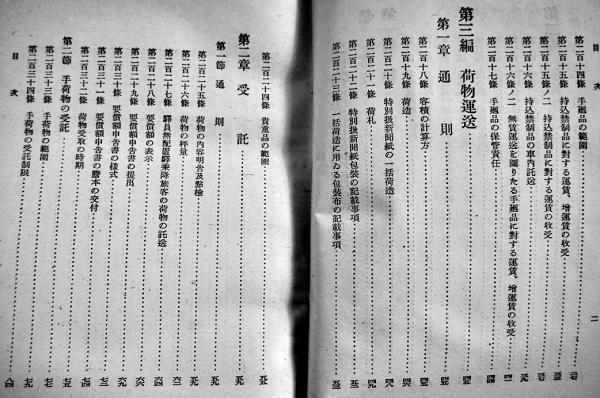 目次
二
第二百十四條 手廻品の範圍
第二百十五條 持込禁制品に對する運賃、增運賃の收受
第二百十五條ノ二 持込禁制品に對する運賃の收受
第二百十六條 持込禁制品の車內託送
第二百十六條ノ二 無賃運送を圖りたる手廻品に對する運賃、增運賃の收受
第二百十七條 手廻品の保管責任
第三編 荷物運送
第一章 通則
第二百十八條 容積の計算方
第二百十九條 荷造
第二百二十條 特別扱新聞紙の一括荷造
第二百二十一條 荷札
第二百二十二條 特別扱新聞紙包裝の記載事項
第二百二十三條 一括荷造に用ゐる包裝布の記載事項
第二百二十四條 貴重品の範圍
第二章 受託
第一節 通則
第二百二十五條 荷物の內容明吿及點檢
第二百二十六條 荷物の秤量
第二百二十七條 驛員無配置驛乘降旅客の荷物の託送
第二百二十八條 要償額の表示
第二百二十九條 要償額申吿書の提出
第二百三十條 要償額申吿書の樣式
第二百三十一條 要償額申吿書の謄本の交付
第二百三十二條 荷物受取の時期
第二節 手荷物の受託
第二百三十三條 手荷物の範圍
第二百三十四條 手荷物の受託制限
目次